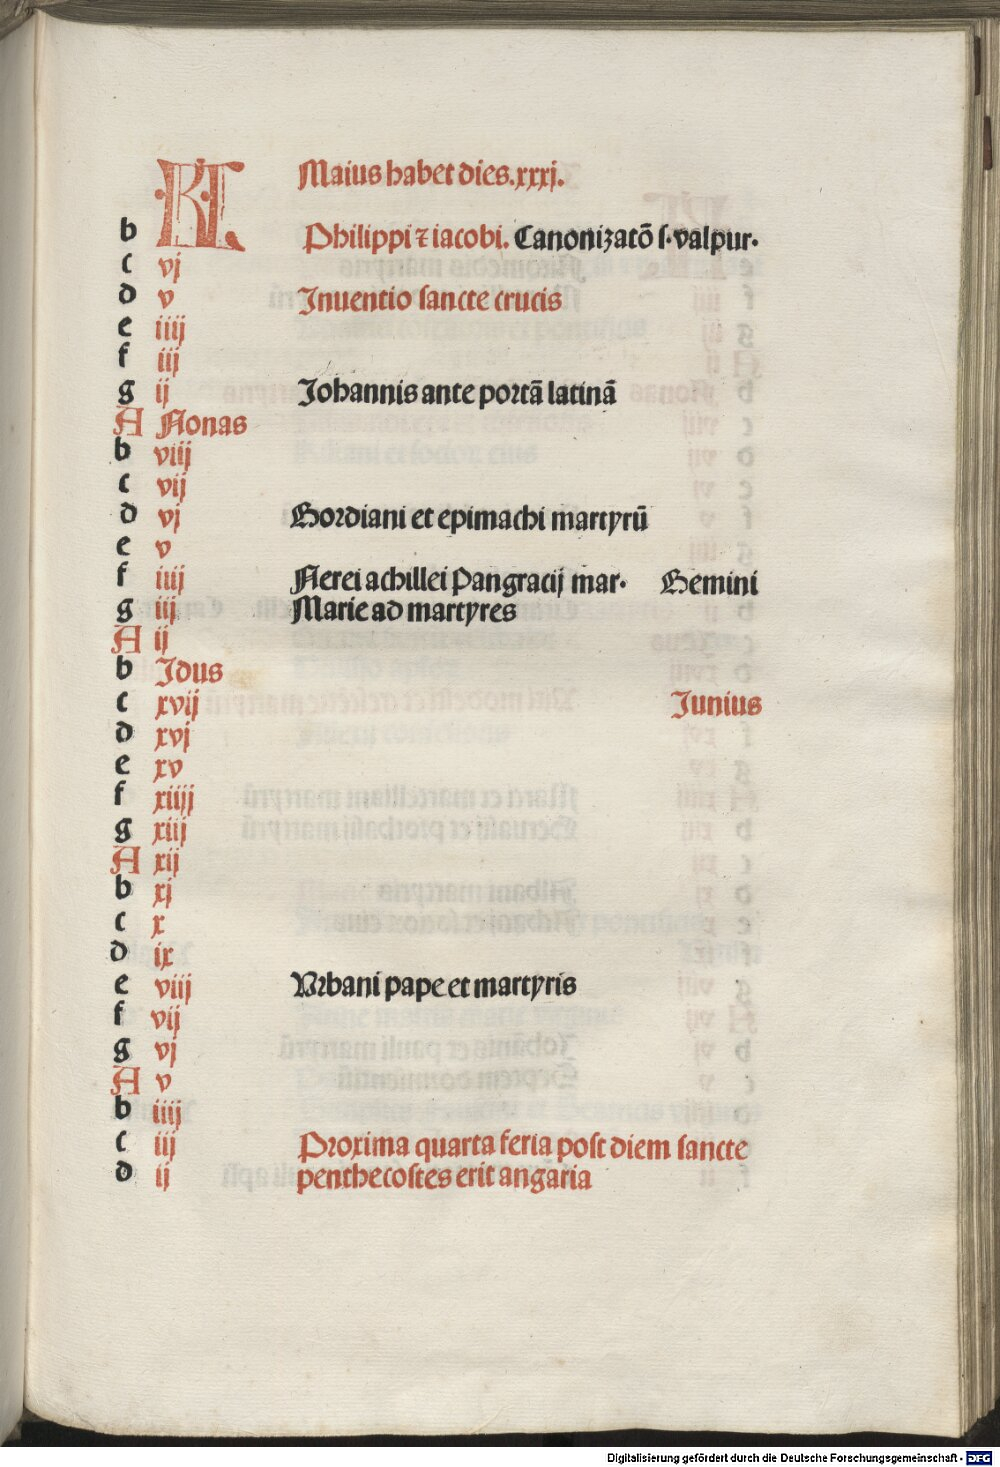 KL Maius habet dies.xxxj.
b Philippi ⁊ iacobi. Canonizatō s. valpur.
c vj
d v Inuentio sancte crucis
e iiij
f iij
g ij Johannis ante portā latinā
A Nonas
b viij
c vij
d vj Gordiani et epimachi martyrū
e v
f iiij Nerei achillei Pangracij mar. Gemini
g iij Marie ad martyres
A ij
b Idus
c xvij Junius
d xvj
e xv
f xiiij
g xiij
A xij
b xj
c x
d ix
e viij Vrbani pape et martyris
f vij
g vj
A v
b iiij
c iij Proxima quarta feria post diem sancte
d ij penthecostes erit angaria
Digitalisierung gefördert durch die Deutsche Forschungsgemeinschaft - DFG